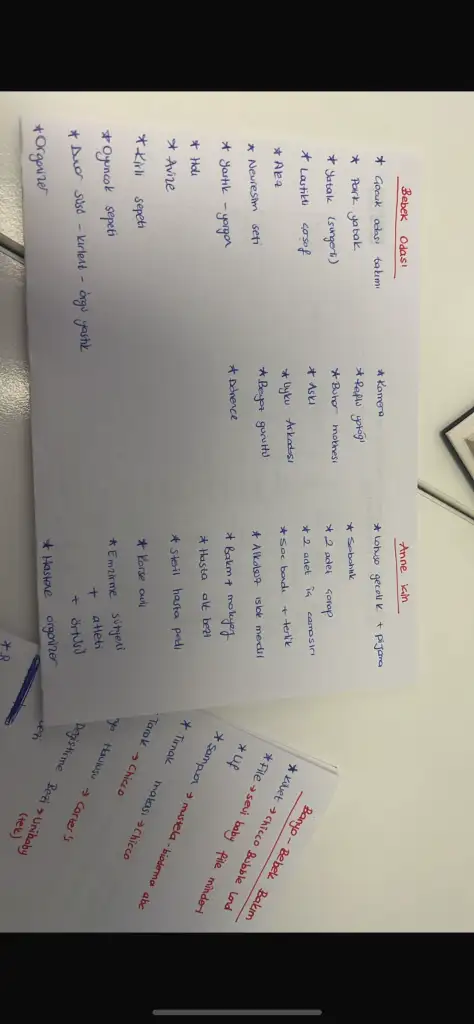 Bebek Odası
* Çocuk odası takımı
* Park yatak
* Yatak (süngerli)
* Lastikli çarşaf
* Alez
* Nevresim seti
* Yastık - yorgan
* Halı
* Avize
* Kirli sepeti
* Oyuncak sepeti
* Duvar süsü - kırlent - örgü yastık
* Organizer
* Kamera
* Buhar makinesi
* Askı
* Uyku Arkadaşı
* Beyaz gürültü
* Dönence
Anne için
* Lohusa gecelik + pijama
* Sabahlık
* 2 adet çorap
* 2 adet iç çamaşırı
* Saç bandı + terlik
* Alkolsüz ıslak mendil
* Bakım + makyaj
* Hasta alt bezi
* Steril hasta pedi
* Korse
* Emzirme sütyeni
+ atleti
+ örtüsü
* Hastane organizer
Banyo - Bebek Bakım
* Küvet → chicco Bubble
* File → sevi baby file minder
* Lif
* Şampuan → mustela - bioderma abc
* Tırnak makası → chicco
Tarak → Chicco
Havlusu → Carter's
Değiştirme → Unibaby